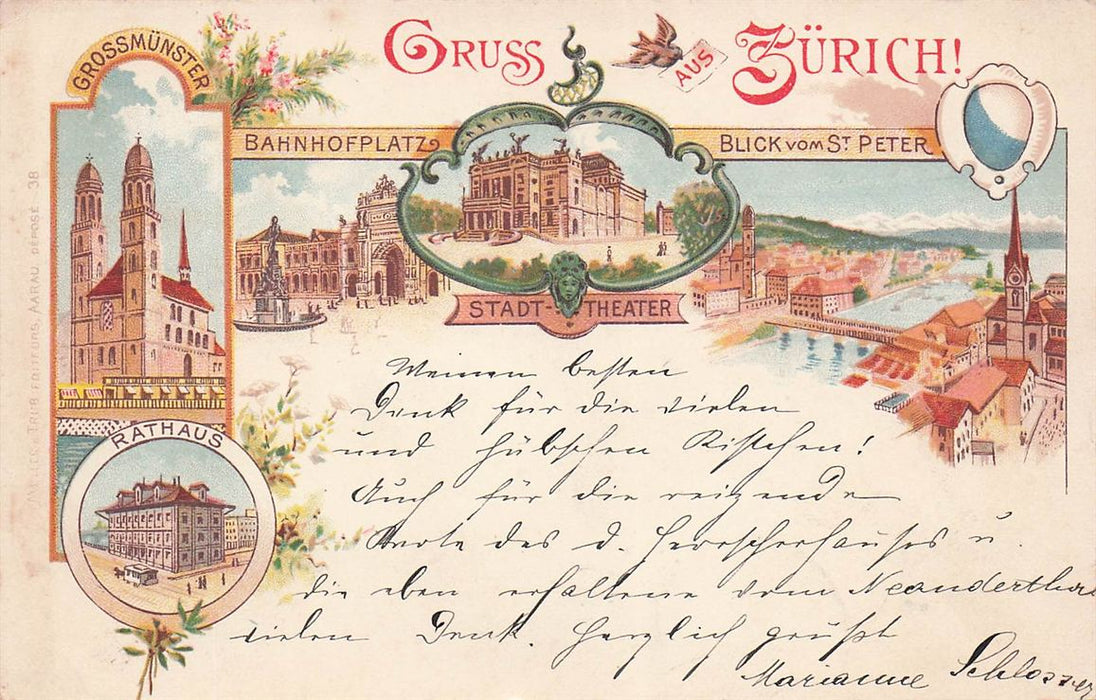 GRUSS AUS ZÜRICH!
GROSSMÜNSTER
BAHNHOFPLATZ
BLICK VOM ST PETER
STADT-THEATER
RATHAUS
MÜLLER & TRÜB EDITEURS, AARAU DÉPOSÉ 38
Meinen besten
Dank für die vielen
und hübschen Kistchen!
Auch für die reizende
Karte des d. Herrscherhauses u.
die eben erhaltene vom Neanderthal
vielen Dank. Herzlich grüßt
Marianne Schlosser